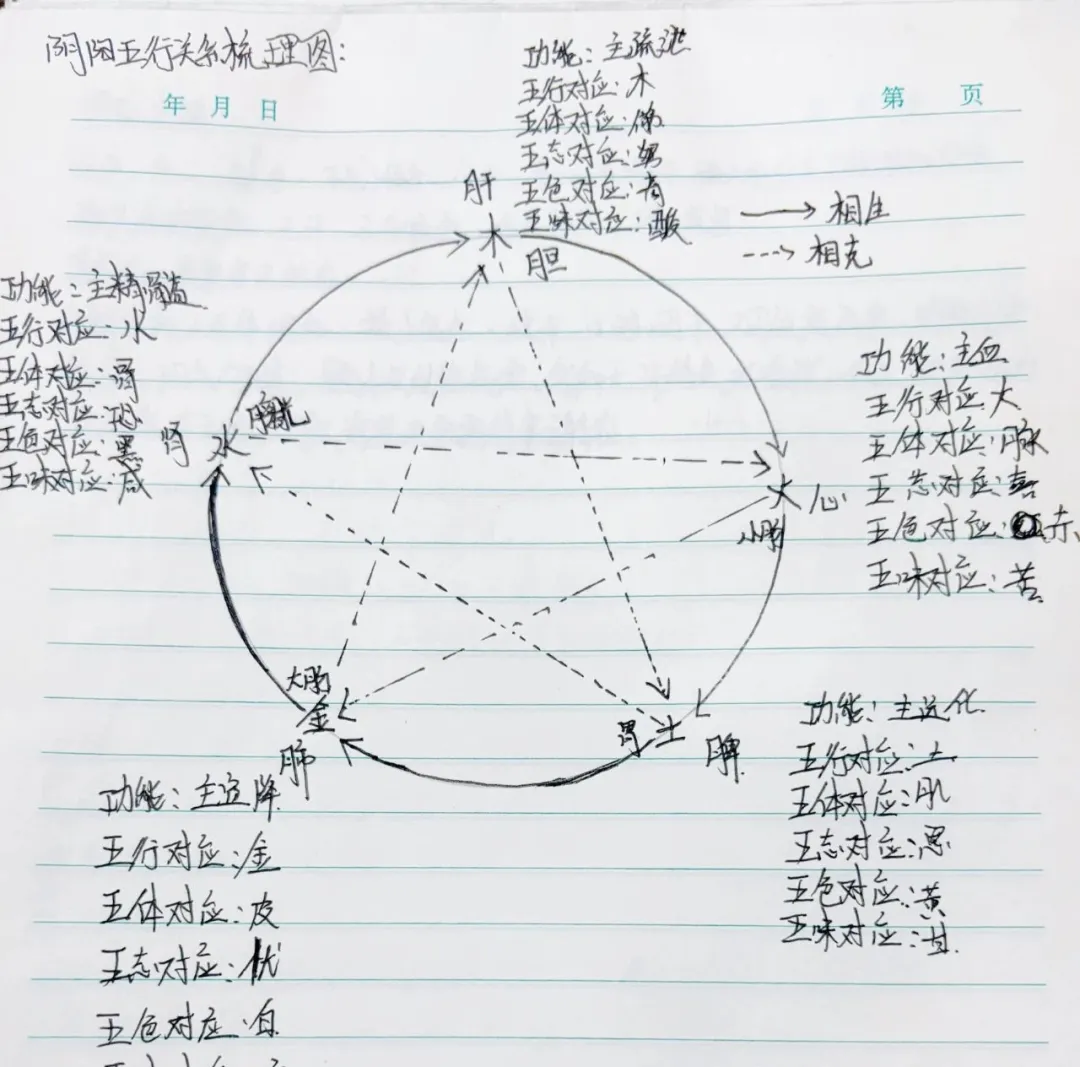 阴阳五行关系梳理图:
年 月 日
第 页
功能:主疏泄
五行对应:木
五体对应:
五志对应:
五色对应:青
五味对应:酸
相生
相克
肝
木
胆
功能:主精骨
五行对应:水
五体对应:骨
五志对应:恐
五色对应:黑
五味对应:咸
肾 水 膀胱
功能:主血
五行对应火
五体对应:脉
五志对应:喜
五色对应:赤
五味对应:苦
火 心
小肠
大肠
金
肺
胃 土 脾
功能:主运化
五行对应:土
五体对应:肌
五志对应:思
五色对应:黄
五味对应:甘
功能:主宣降
五行对应:金
五体对应:皮
五志对应:忧
五色对应:白